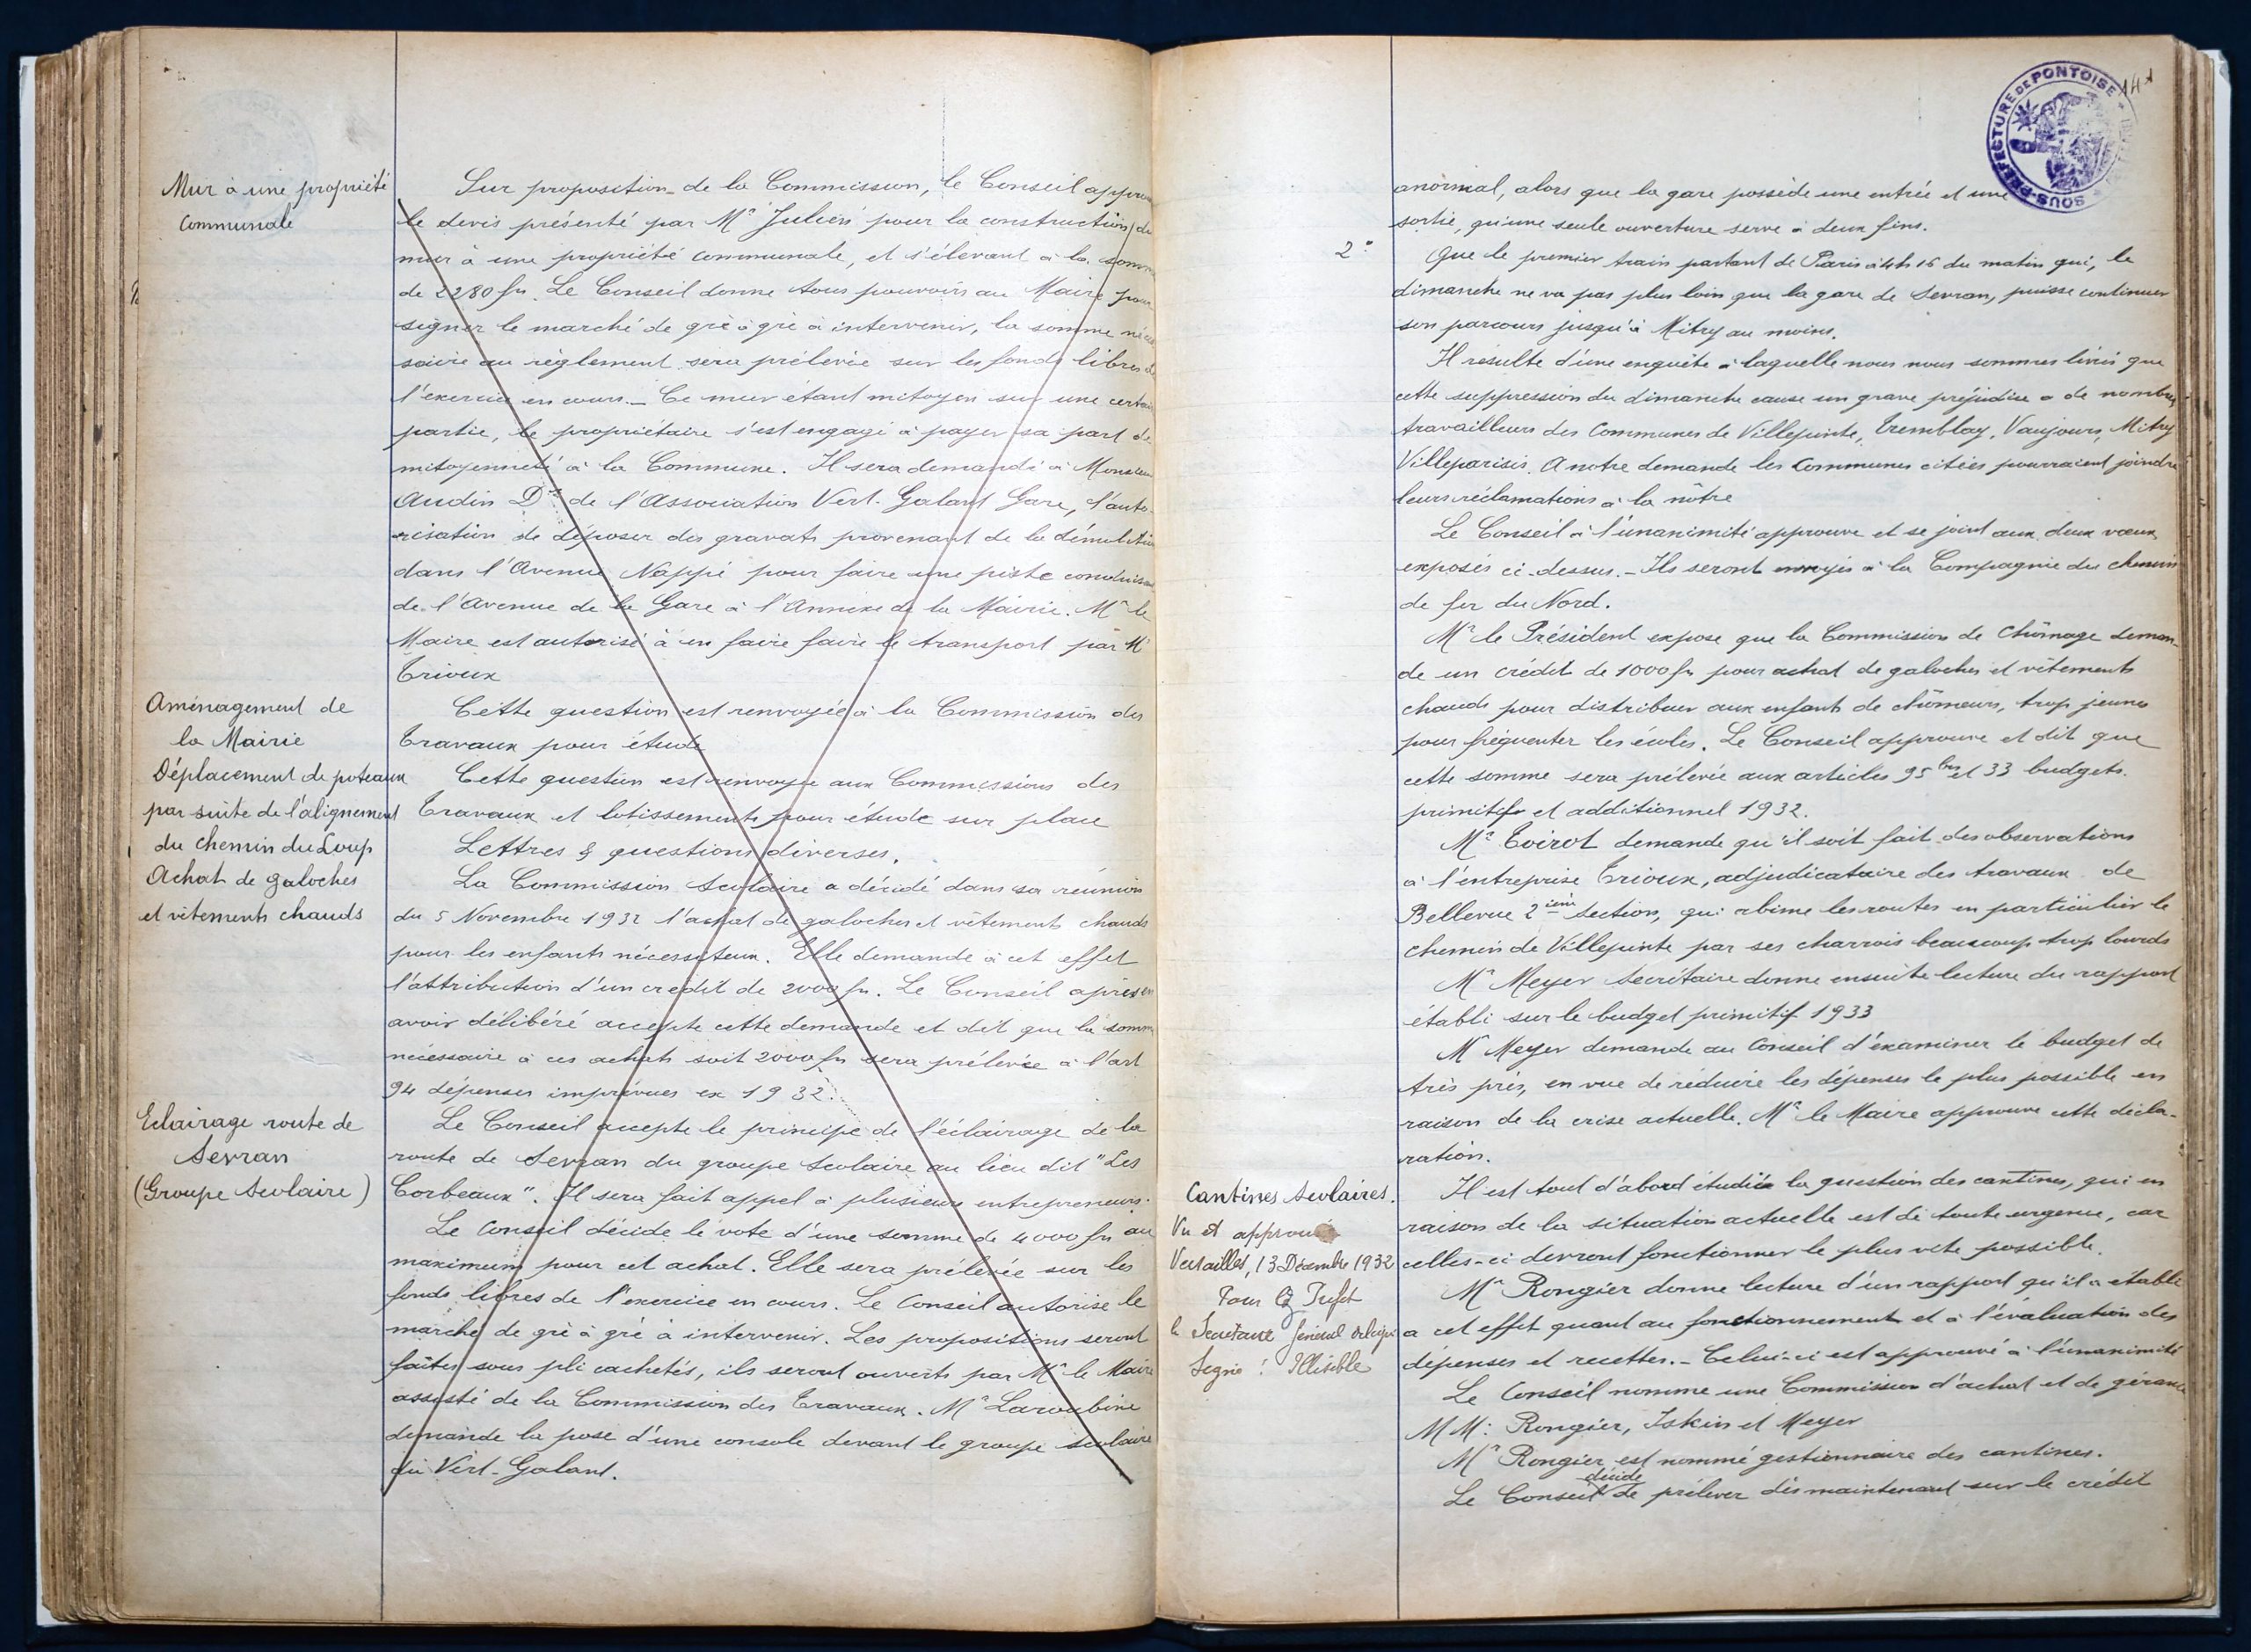 Mur à une propriété
communale
Sur proposition de la Commission, le Conseil approu
le devis présenté par Mr Julien pour la construction du
mur à une propriété communale, et s'élevant à la somm
de 2280 frs. Le Conseil donne tous pouvoirs au Maire pour
signer le marché de gré à gré à intervenir, la somme néces
saire au règlement sera prélevée sur les fonds libres de
l'exercice en cours. _ Ce mur étant mitoyen sur une certain
partie, le propriétaire s'est engagé à payer sa part de
mitoyenneté à la Commune. Il sera demandé à Monsieur
Audin Dr de l'Association Vert-Galant Gare, l'auto-
risation de déposer des gravats provenant de la démolition
dans l'Avenue Nappé pour faire une piste conduisant
de l'Avenue de la Gare à l'Annexe de la Mairie. Mr le
Maire est autorisé à en faire faire le transport par Mr
Trioux
Aménagement de
la Mairie
Cette question est renvoyée à la Commission des
Travaux pour étude
Déplacement de poteaux
par suite de l'alignement
du Chemin du Loup
Cette question est renvoyée aux Commissions des
Travaux et lotissements pour étude sur place
Lettres & questions diverses.
Achat de galoches
et vêtements chauds
La Commission Scolaire a décidé dans sa réunion
du 5 Novembre 1932 l'achat de galoches et vêtements chauds
pour les enfants nécessiteux. Elle demande à cet effet
l'attribution d'un crédit de 2000 frs. Le Conseil après en
avoir délibéré accepte cette demande et dit que la somm
nécessaire à ces achats soit 2000 frs sera prélevée à l'art
94 dépenses imprévues ex 1932.
Eclairage route de
Sevran
(Groupe Scolaire)
Le Conseil accepte le principe de l'éclairage de la
route de Sevran du groupe scolaire au lieu dit "Les
Corbeaux". Il sera fait appel à plusieurs entrepreneurs.
Le Conseil décide le vote d'une somme de 4000 frs au
maximum pour cet achat. Elle sera prélevée sur les
fonds libres de l'exercice en cours. Le Conseil autorise le
marché de gré à gré à intervenir. Les propositions seront
faites sous pli cachetés, ils seront ouverts par Mr le Maire
assisté de la Commission des Travaux. Mr Laroubine
demande la pose d'une console devant le groupe scolaire
du Vert-Galant.
SOUS-PRÉFECTURE DE PONTOISE
anormal, alors que la gare possède une entrée et une
sortie, qu'une seule ouverture serve à deux fins.
2° Que le premier train partant de Paris à 4h 16 du matin qui, le
dimanche ne va pas plus loin que la gare de Sevran, puisse continuer
son parcours jusqu'à Mitry au moins.
Il résulte d'une enquête à laquelle nous nous sommes livrés que
cette suppression du dimanche cause un grave préjudice à de nombreux
travailleurs des Communes de Villepinte, Tremblay, Vaujours, Mitry
Villeparisis. A notre demande les Communes citées pourraient joindre
leurs réclamations à la nôtre
Le Conseil à l'unanimité approuve et se joint aux deux vœux
exposés ci-dessus. _ Ils seront envoyés à la Compagnie du chemin
de fer du Nord.
Mr le Président expose que la Commission de Chômage deman-
de un crédit de 1000 frs pour achat de galoches et vêtements
chauds pour distribuer aux enfants de chômeurs, trop jeunes
pour fréquenter les écoles. Le Conseil approuve et dit que
cette somme sera prélevée aux articles 95 bis et 33 budgets.
primitifs et additionnel 1932.
Mr Toirot demande qu'il soit fait des observations
à l'entreprise Trioux, adjudicataire des travaux de
Bellevue 2ième Section, qui abîme les routes en particulier le
chemin de Villepinte par ses charrois beaucoup trop lourds
Mr Meyer Secrétaire donne ensuite lecture du rapport
établi sur le budget primitif 1933
Mr Meyer demande au Conseil d'examiner le budget de
très près, en vue de réduire les dépenses le plus possible en
raison de la crise actuelle. Mr le Maire approuve cette décla-
ration.
Cantines Scolaires.
Vu et approuvé
Versailles, 13 Décembre 1932
Pour le Préfet
le Secrétaire Général délégué
Signé : Illisible
Il est tout d'abord étudiée la question des cantines, qui en
raison de la situation actuelle est de toute urgence, car
celles-ci devront fonctionner le plus vite possible.
Mr Rongier donne lecture d'un rapport qu'il a établi
à cet effet quant au fonctionnement et à l'évaluation des
dépenses et recettes. _ Celui-ci est approuvé à l'unanimité
Le Conseil nomme une Commission d'achat et de gérance
MM: Rongier, Iskin et Meyer
Mr Rongier est nommé gestionnaire des cantines.
Le Conseil décide de prélever dès maintenant sur le crédit